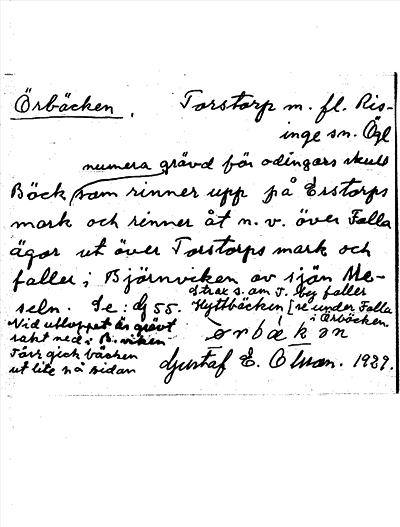 Örbäcken. Torstorp m. fl. Ris-
inge sn. Ögl
numera grävd för odlingars skull
Bäck som rinner upp på Erstorps
mark och rinner åt n. v. över Falla
ägor ut över Torstorps mark och
faller i Björnviken av sjön Me-
seln. Se: dj 55.
strax s. om T. by faller
Hyttbäcken [se under Falla
i Örbäcken.
Vid utloppet är grävt
rakt ned i B.viken
Förr gick bäcken
ut lite på sidan
örbäkän
Gustaf E. Olsson. 1929.